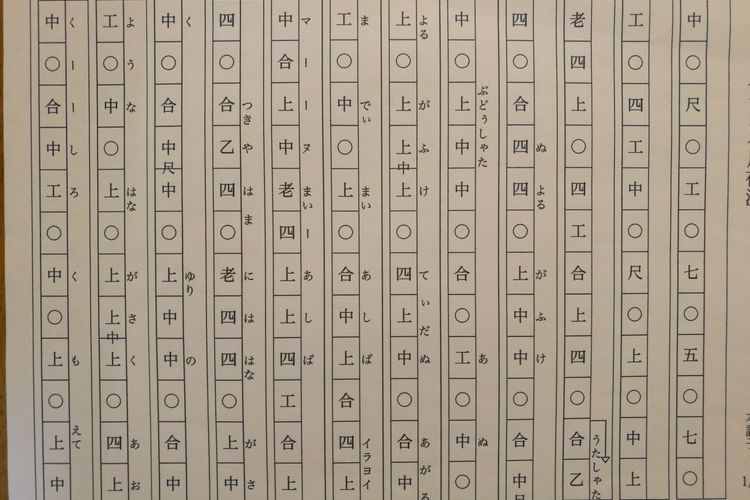 中〇尺〇工〇七〇五〇七〇
工〇四工中〇尺〇上〇中上
老四上〇四工合上四〇合乙
うたしゃた
四〇合四四〇上中中〇合中
ぬ よる が ふ け
中〇上中中〇合〇工〇中〇
ぶどぅしゃた あ ぬ
上〇上上中上〇四上中〇合中
よる が ふ け てぃだ ぬ あがる
工〇中〇上〇合中上合四上
ま でぃ まい あ し ば イラヨイ
中合上中老四上上四工合上
マ ー ー ヌ まい ー あ し ば
四〇合乙四〇老四四〇上中
つき や は ま に は はな が さ
中〇合中尺中〇上中中〇合中
く ゆり の
工〇中〇上〇上上中上〇四上
よ う な はな が さ く あ お
中〇合中工〇中〇上〇上中
く ー ー し ろ く も えて